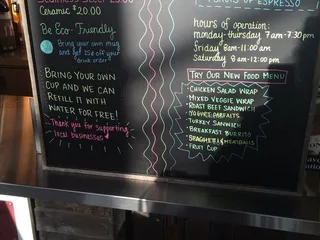 Stainless Steel 25.00
Ceramic $20.00
Be Eco-Friendly
Bring your own mug
and get 25¢ off your
drink order!
Bring your own
cup and we can
refill it with
water for free!
Thank you for supporting
local businesses
of Espresso
hours of operation:
monday-thursday 7am-7:30pm
friday 8am-11:00am
Saturday 9am-12:00pm
Try Our New Food Menu
Chicken Salad Wrap
Mixed Veggie Wrap
Roast Beef Sandwich
Yogurt Parfaits
Turkey Sandwich
Breakfast Burrito
Spaghetti & Meatballs
Fruit Cup